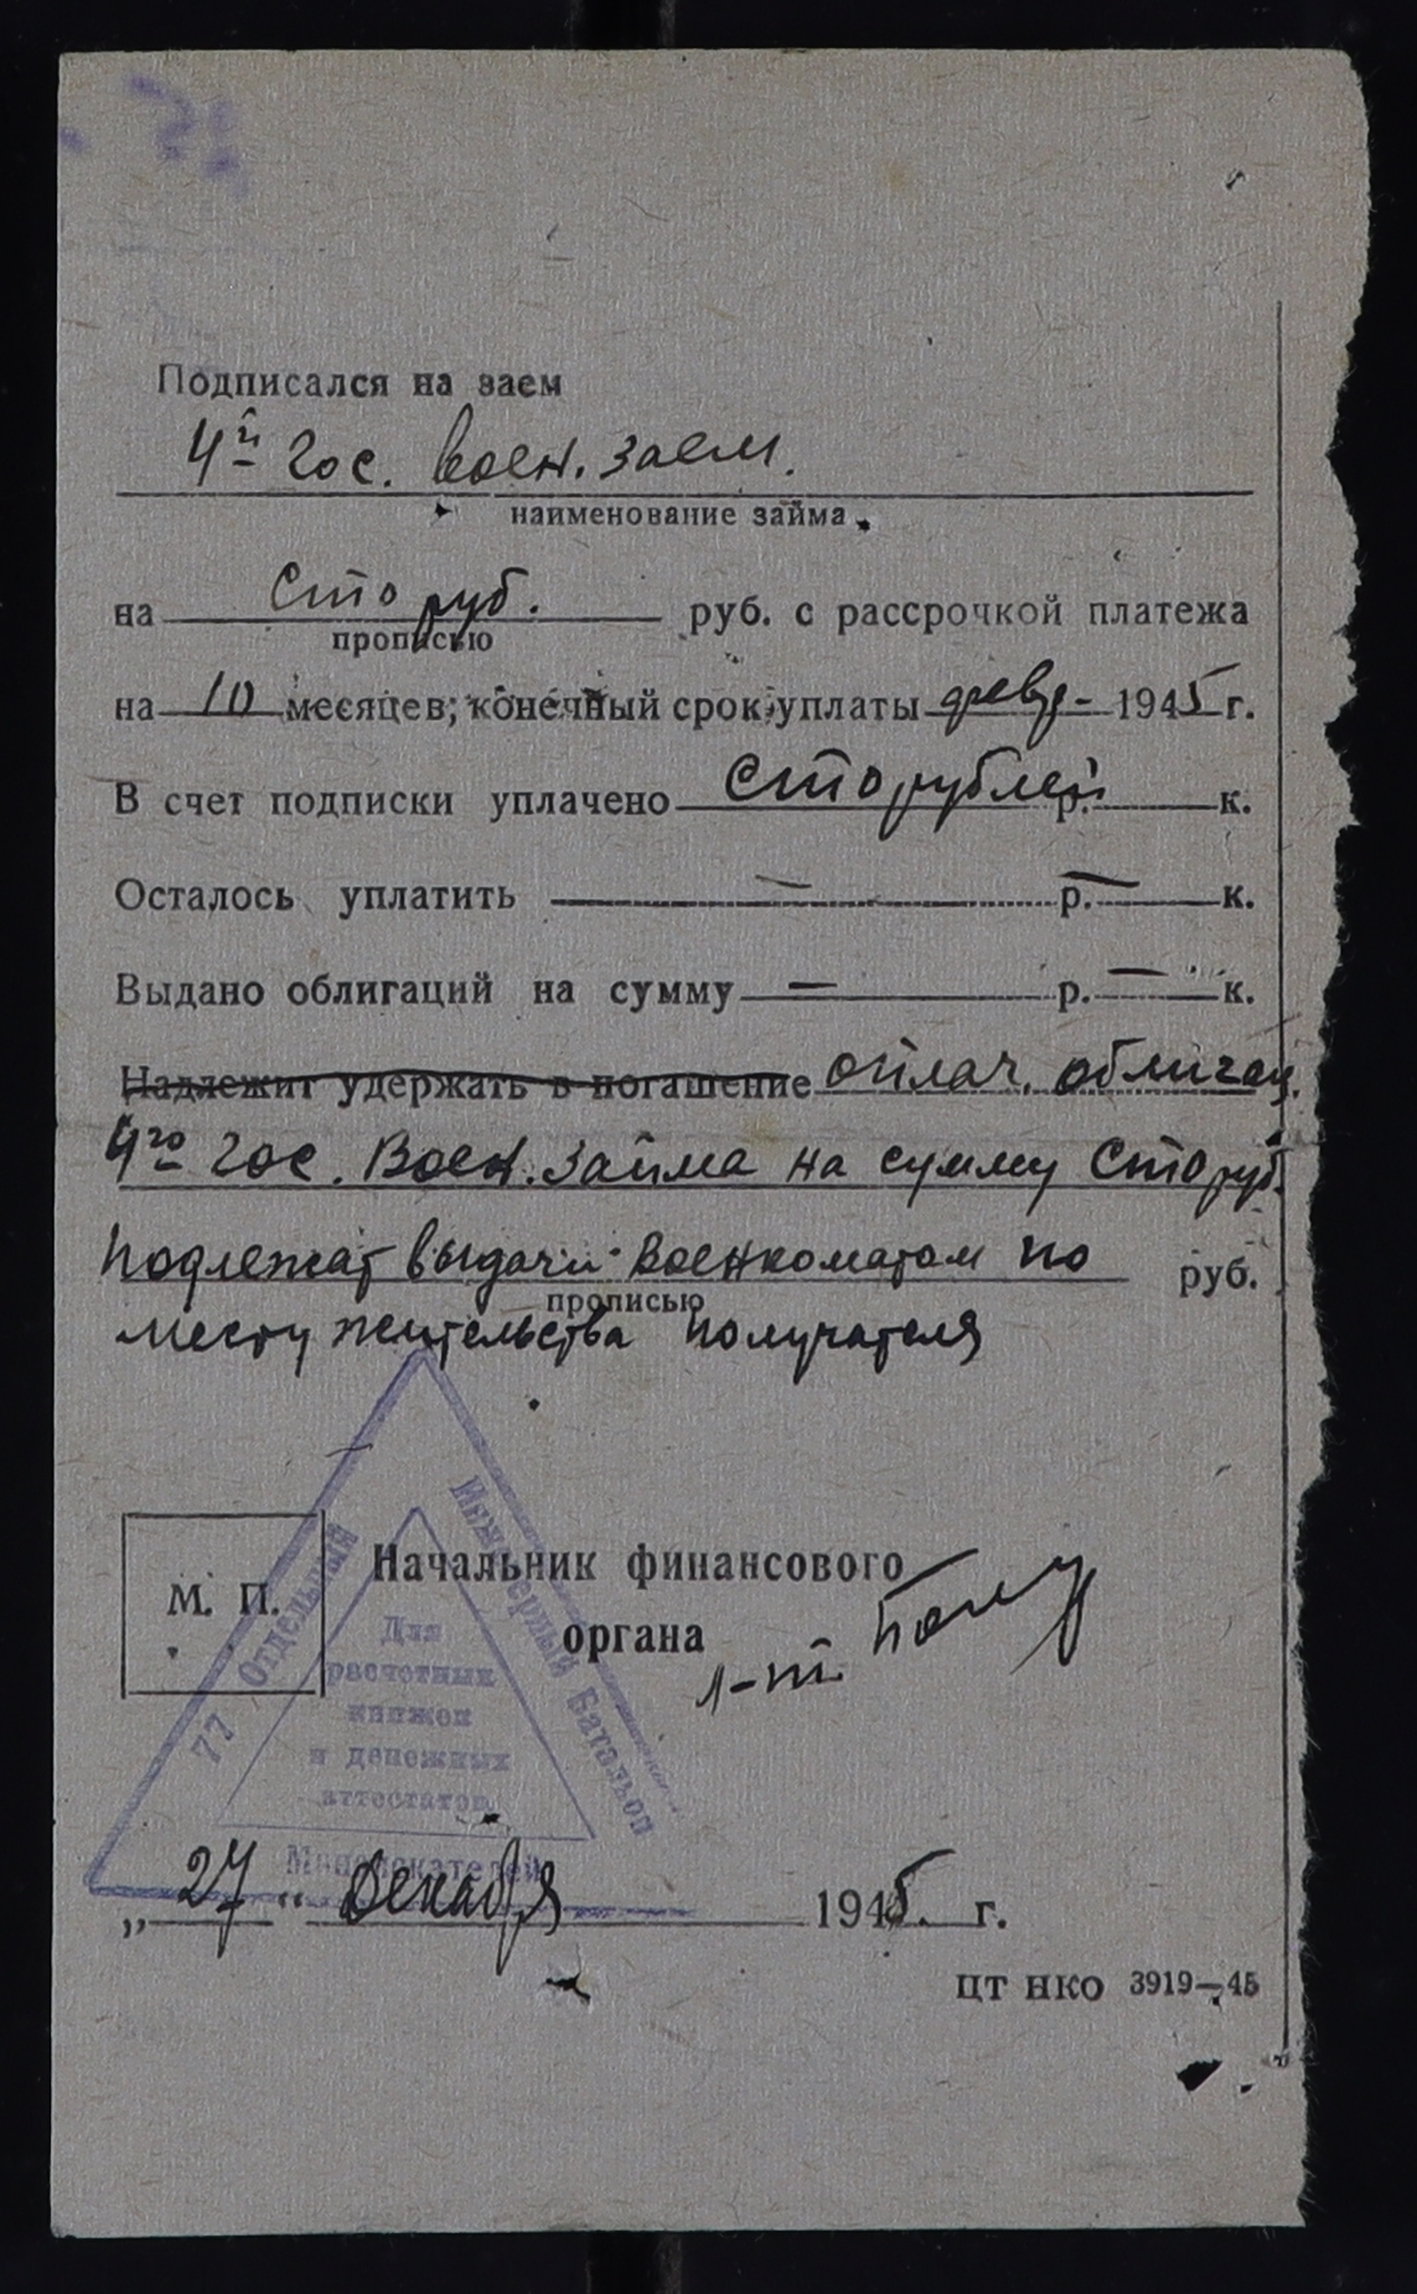 Подписался на заем
4й гос. воен. заем.
наименование займа
на сто руб. руб. с рассрочкой платежа
прописью
на 10 месяцев; конечный срок уплаты февр- 1945 г.
В счет подписки уплачено сто рублей р. к.
Осталось уплатить — р. — к.
Выдано облигаций на сумму — р. — к.
Надлежит удержать в погашение оплач. облигац.
4го гос. Воен. займа на сумму сто руб.
подлежат выдачи военкоматом по руб.
прописью
месту жительства получателя
М. П.
Начальник финансового
органа л-т
77 Отдельный Инженерный Батальон
Миноискателей
Для
расчетных
книжек
и денежных
аттестатов
„27" декабря 1945. г.
ЦТ НКО 3919—45